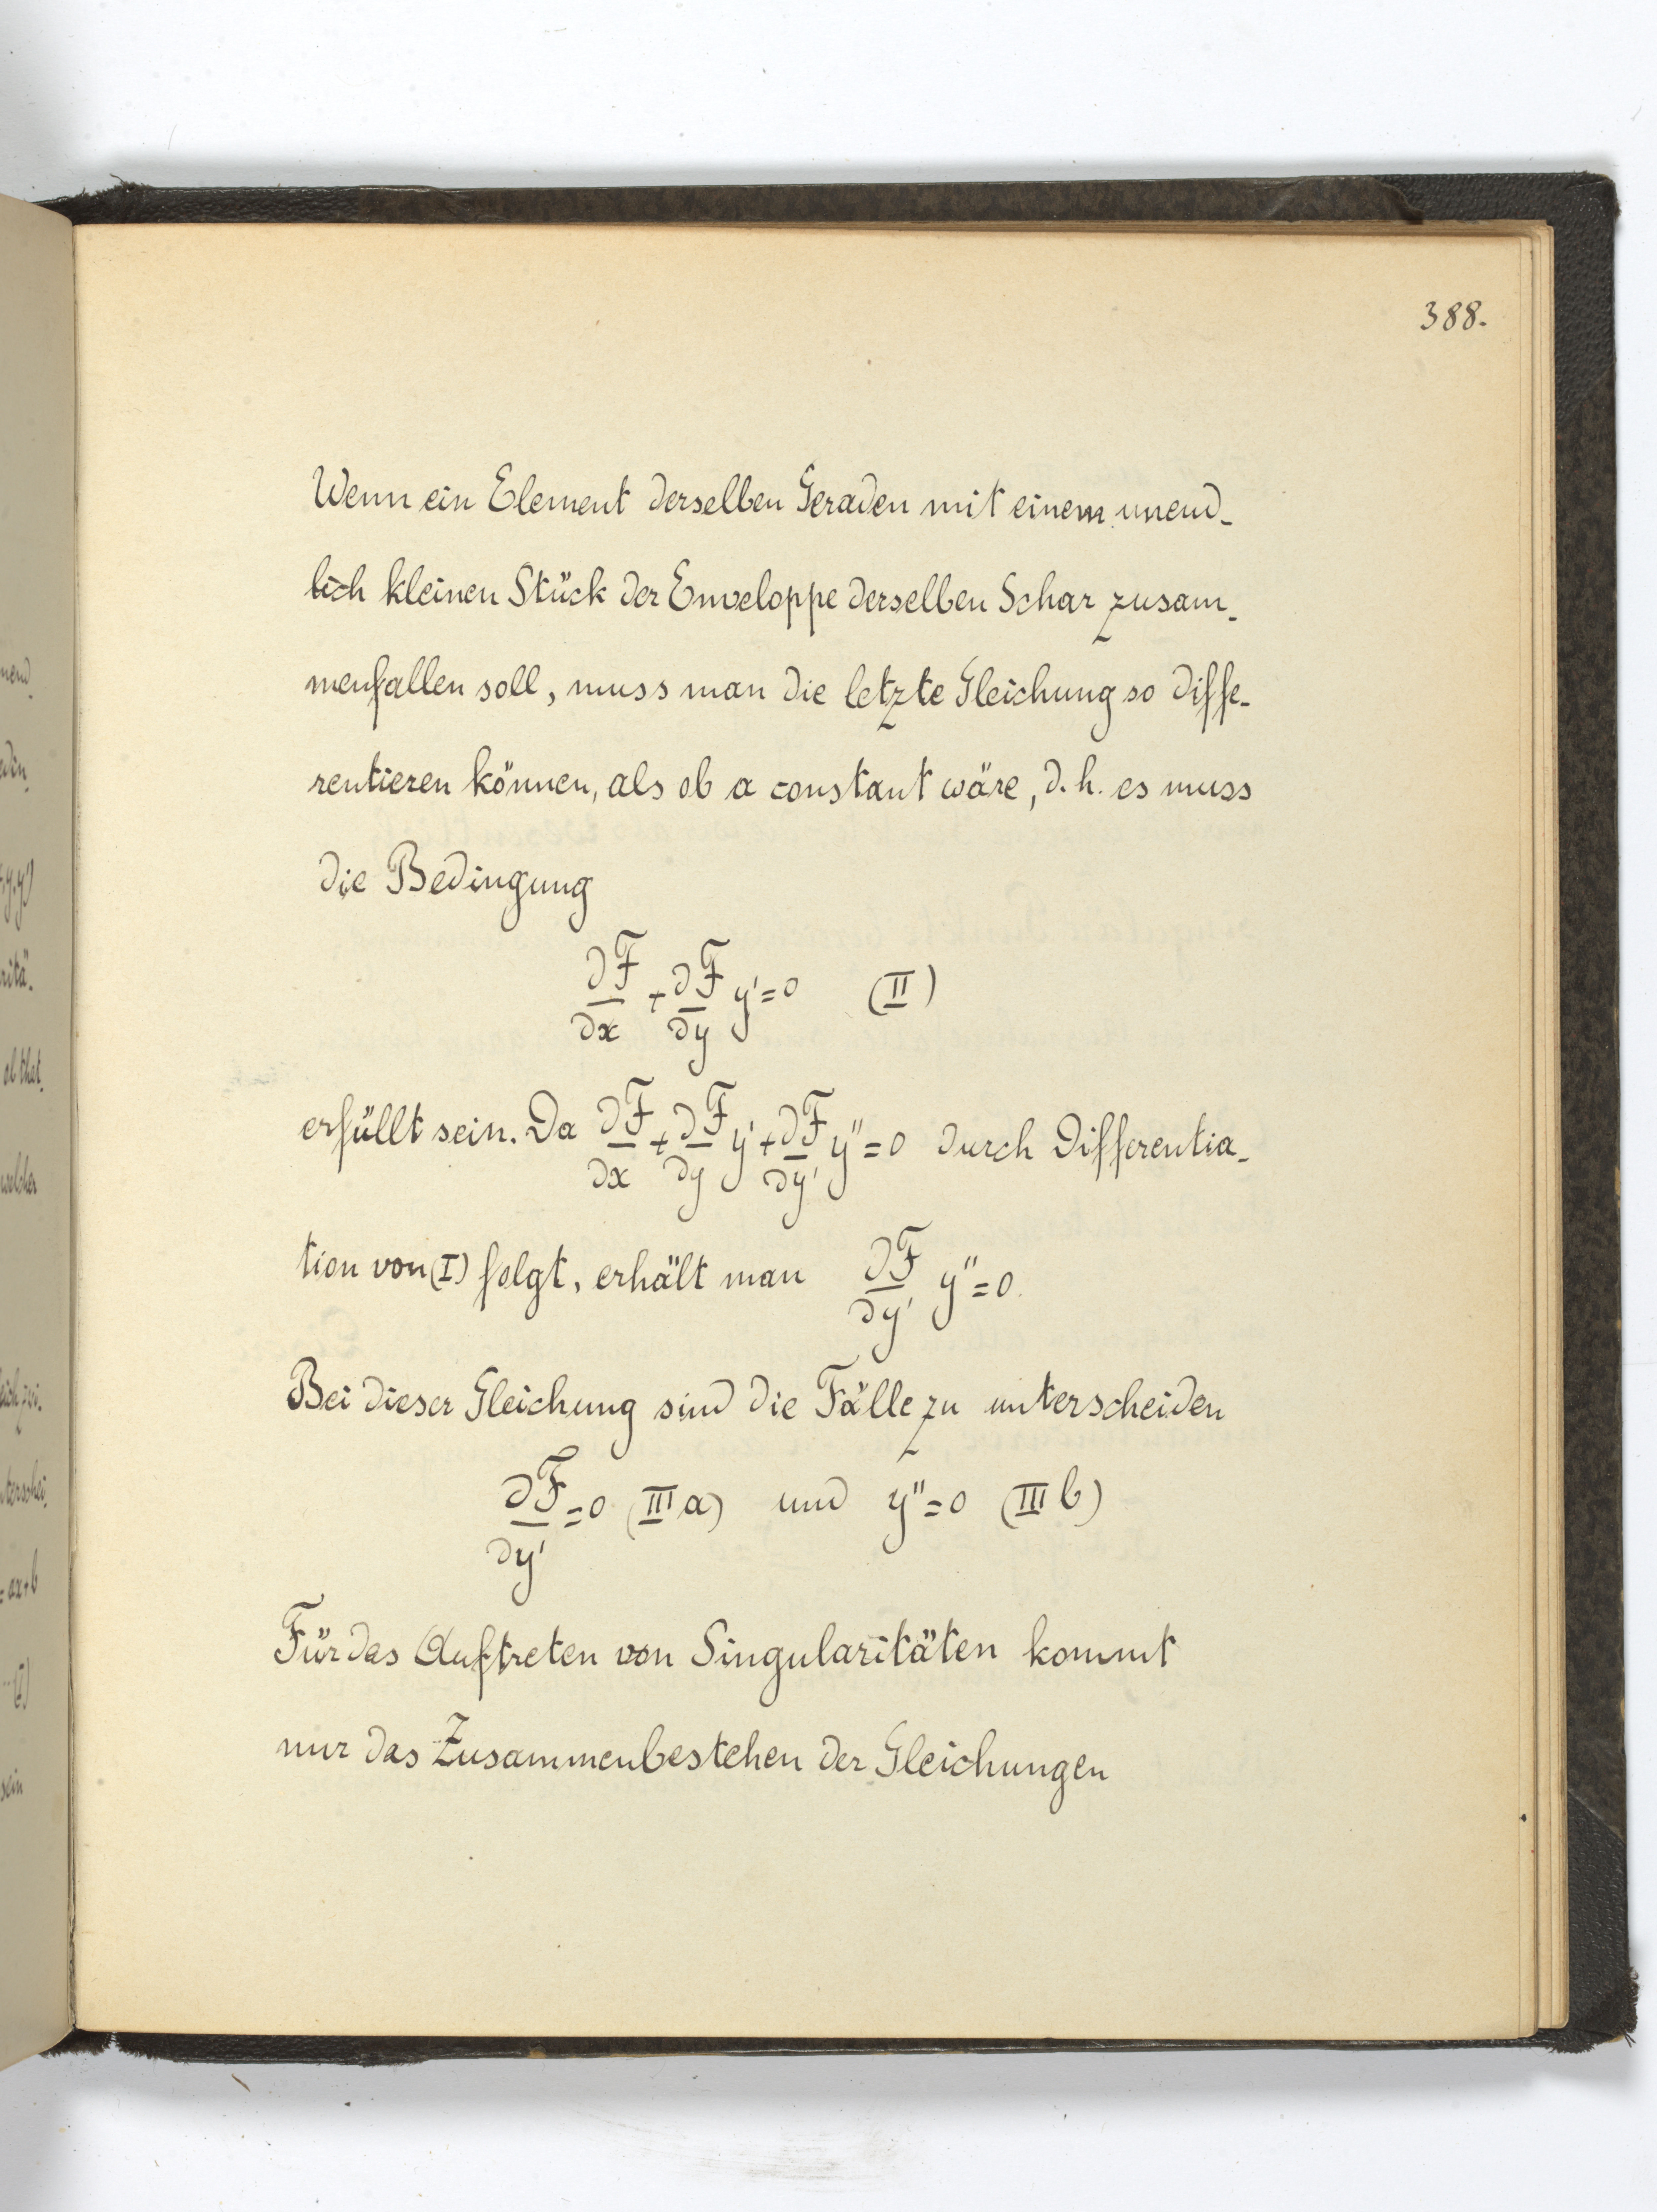 388.
Wenn ein Element derselben Geraden mit einem unend-
lich kleinen Stück der Enveloppe derselben Schar zusam-
menfallen soll, muss man die letzte Gleichung so diffe-
rentieren können, als ob a constant wäre, d.h. es muss
die Bedingung
∂F/∂x + ∂F/∂y y' = 0 (II)
erfüllt sein. Da ∂F/∂x + ∂F/∂y y' + ∂F/∂y' y'' = 0 durch Differentia-
tion von (I) folgt, erhält man ∂F/∂y' y'' = 0.
Bei dieser Gleichung sind die Fälle zu unterscheiden
∂F/∂y' = 0 (III a) und y'' = 0 (III b)
Für das Auftreten von Singularitäten kommt
nur das Zusammenbestehen der Gleichungen